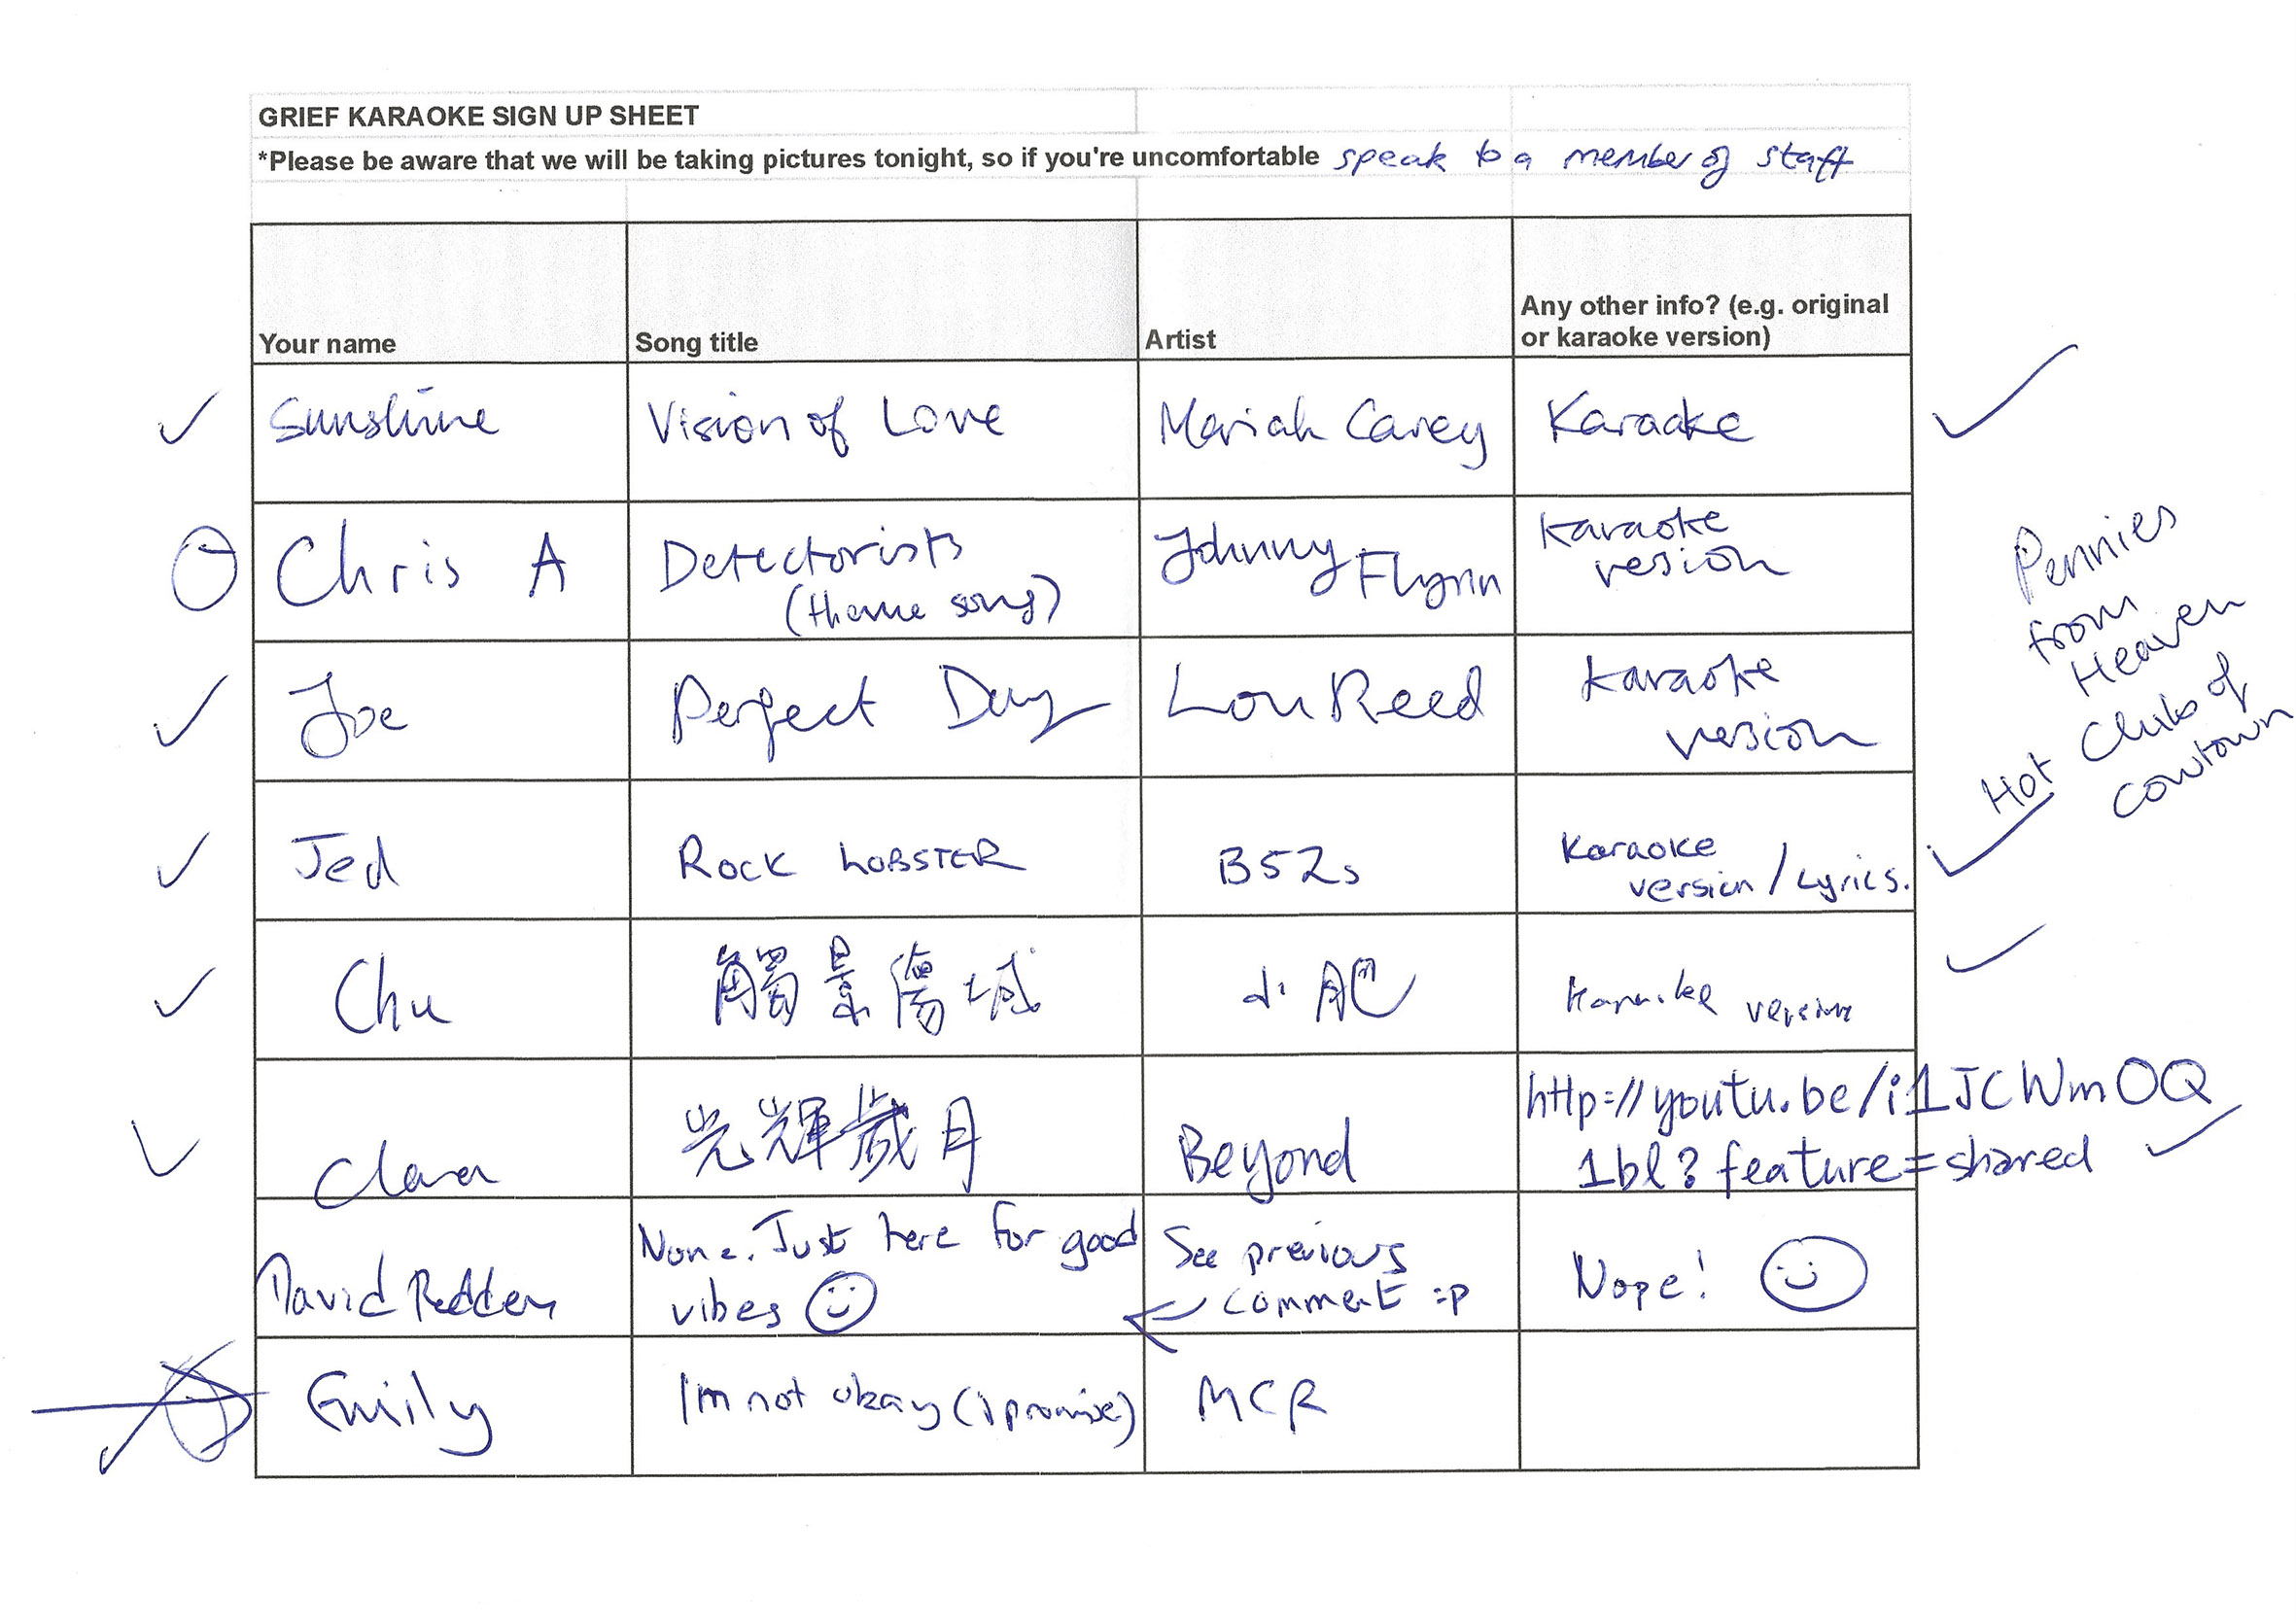 GRIEF KARAOKE SIGN UP SHEET
*Please be aware that we will be taking pictures tonight, so if you're uncomfortable speak to a member of staff
Your name
Song title
Artist
Any other info? (e.g. original
or karaoke version)
Sunshine
Vision of Love
Mariah Carey
Karaoke
Chris A
Detectorists
(theme song)
Johnny Flynn
Karaoke
version
Joe
Perfect Day
Lou Reed
Karaoke
version
Jed
ROCK LOBSTER
B52s
Karaoke
version / Lyrics.
Chu
觸景傷城
Karaoke version
Clara
光輝歲月
Beyond
http://youtu.be/i1JCWmOQ
1bl?feature=shared
David
None. Just here for good
vibes
See previous
comment :p
Nope!
Emily
I'm not okay (i promise)
MCR
Pennies
from
Heaven
Hot Club of
Cowtown